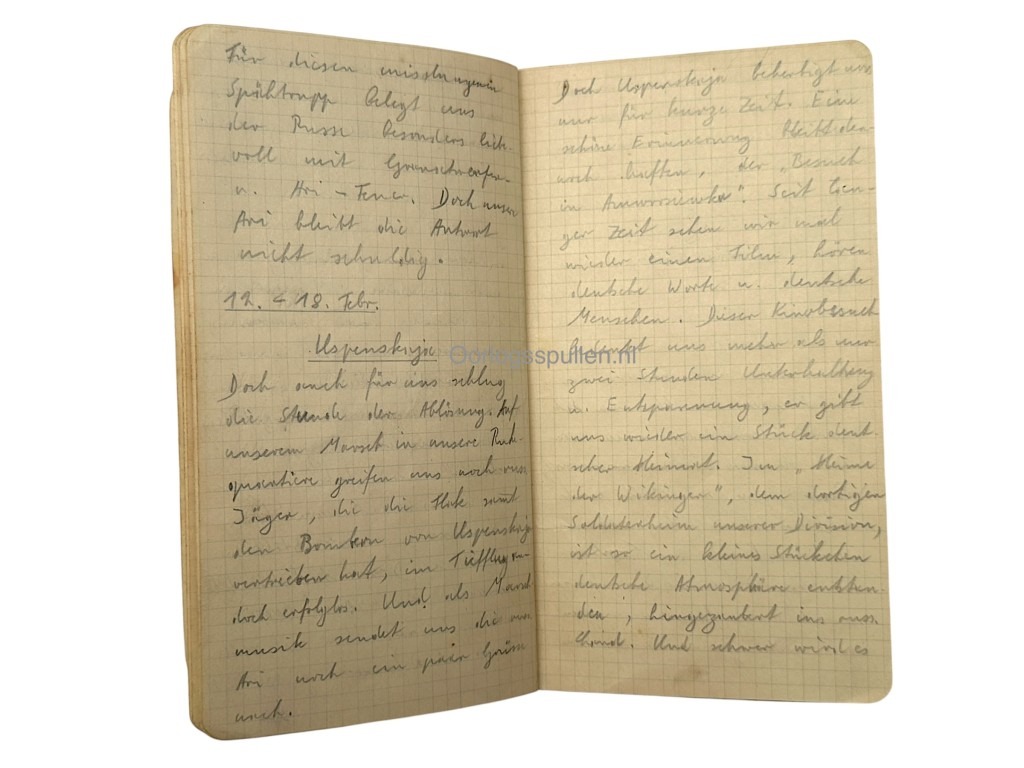 Für diesen misslungenen
Spähtrupp belegt uns
der Russe besonders lieb-
voll mit Granatwerfer-
u. Ari-Feuer. Doch unsere
Ari bleibt die Antwort
nicht schuldig.
12. 18. Febr.
Uspenskaja
Doch auch für uns schlug
die Stunde der Ablösung. Auf
unserem Marsch in unsere Ruh-
quartiere greifen uns noch russ.
Jäger, die die Flak samt
den Bombern von Uspenskaja
vertrieben hat, im Tiefflug an -
doch erfolglos. Und als Marsch-
musik sendet uns die russ.
Ari noch ein paar Grüsse
nach.
Doch Uspenskaja beherbigt uns
nur für kurze Zeit. Eine
schöne Erinnerung bleibt den-
noch haften, der „Besuch
in Amwrosiewka“. Seit lan-
ger Zeit sehen wir mal
wieder einen Film, hören
deutsche Worte u. deutsche
Menschen. Dieser Kinobesuch
bedeutet uns mehr als nur
zwei Stunden Unterhaltung
u. Entspannung, er gibt
uns wieder ein Stück deut-
scher Heimat. Im „Heime
der Wikinger“, dem dortigen
Soldatenheim unserer Division,
ist so ein kleines Stückchen
deutsche Atmosphäre entstan-
den, hingezaubert ins russ.
Land. Und schwer wird es
Oorlogsspullen.nl